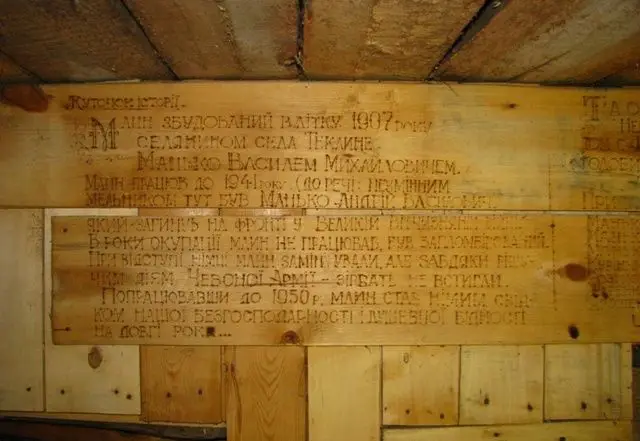 Куточок історії.
Млин збудований влітку 1907 року
селянином села Теклине
Манько Василем Михайловичем.
Млин працював до 1941 року. (До речі незмінним
мельником тут був Манько Андрій Васильович,
який загинув на фронті у Великій
В роки окупації млин не працював, був запломбований.
При відступі німці млин замінували, але завдяки
діям Чевоної Армії – зірвать не встигли.
Попрацювавши до 1950 р. млин став німим свід-
ком нашої безгосподарності і душевної бідності
на довгі роки...